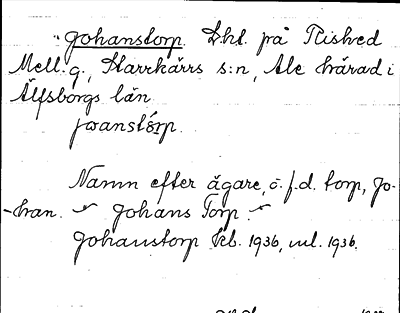 Johanstorp. Lht. på Rished
Mell.g., Starrkärrs s:n, Ale härad i
Älfsborgs län.
joanstórp.
Namn efter ägare, o. f.d. torp, Jo-
han. " Johans Torp "
Johanstorp kb. 1936, ml. 1936.